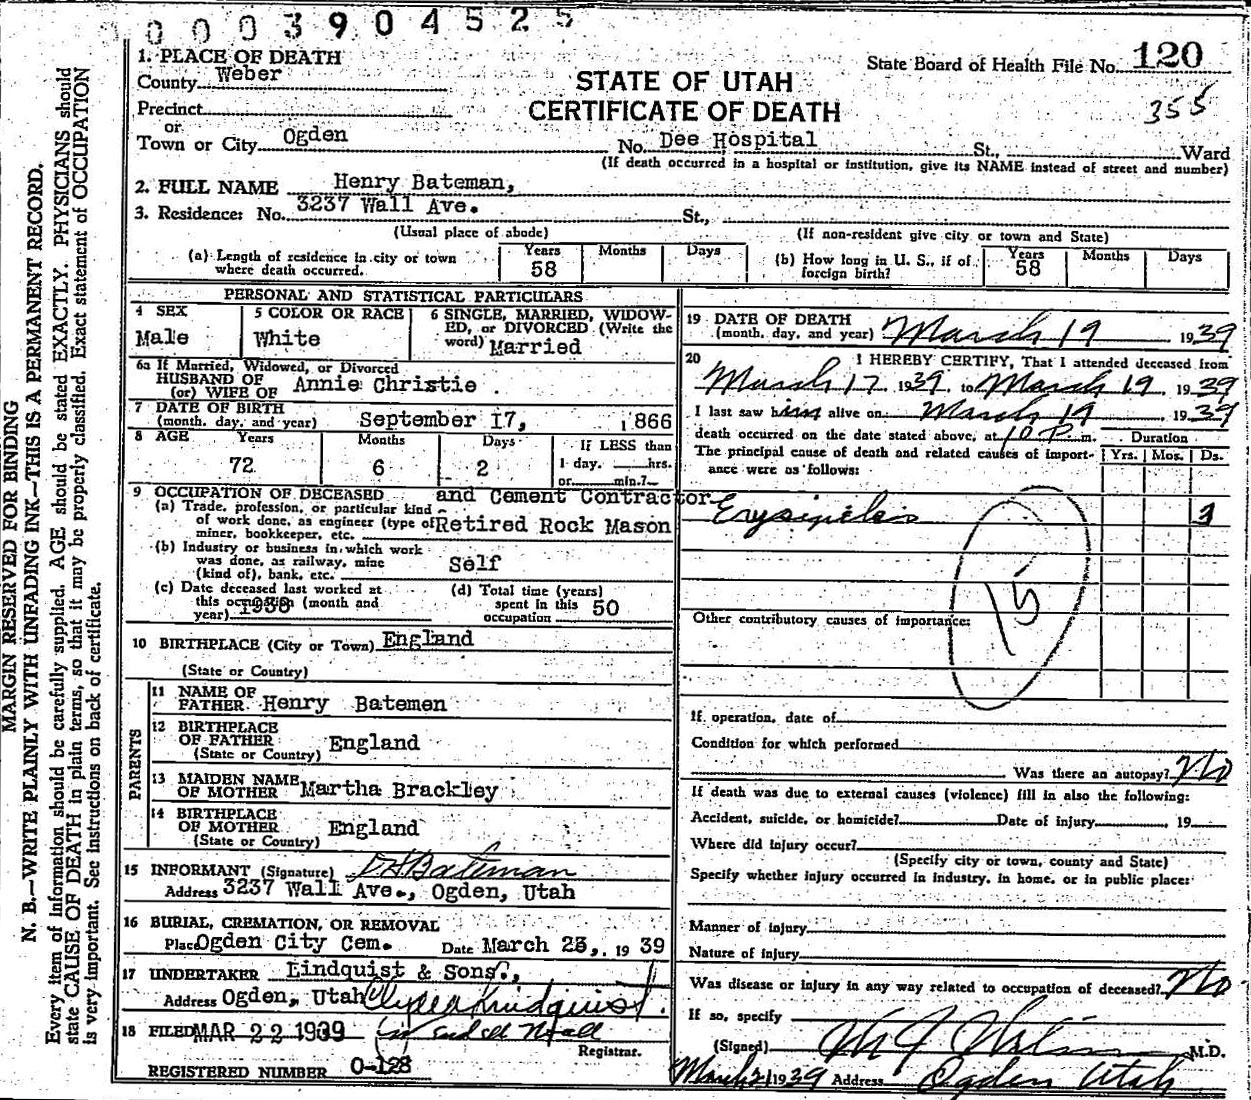 0003904525
MARGIN RESERVED FOR BINDING
N. B.—WRITE PLAINLY WITH UNFADING INK—THIS IS A PERMANENT RECORD.
Every item of information should be carefully supplied. AGE should be stated EXACTLY. PHYSICIANS should
state CAUSE OF DEATH in plain terms, so that it may be properly classified. Exact statement of OCCUPATION
is very important. See instructions on back of certificate.
STATE OF UTAH
CERTIFICATE OF DEATH
State Board of Health File No. 120
355
1. PLACE OF DEATH
County Weber
Precinct
or
Town or City Ogden No. Dee Hospital St., Ward
(If death occurred in a hospital or institution, give its NAME instead of street and number)
2. FULL NAME Henry Bateman,
3. Residence: No. 3237 Wall Ave. St.,
(Usual place of abode) (If non-resident give city or town and State)
(a) Length of residence in city or town where death occurred. Years 58 Months Days
(b) How long in U. S., if of foreign birth? Years 58 Months Days
PERSONAL AND STATISTICAL PARTICULARS
4 SEX Male
5 COLOR OR RACE White
6 SINGLE, MARRIED, WIDOWED, or DIVORCED (Write the word) Married
6a If Married, Widowed, or Divorced
HUSBAND OF
(or) WIFE OF Annie Christie
7 DATE OF BIRTH
(month, day, and year) September 17, 1866
8 AGE Years 72 Months 6 Days 2 If LESS than 1 day, hrs. or min.?
9 OCCUPATION OF DECEASED and Cement Contractor
(a) Trade, profession, or particular kind
of work done, as engineer (type of Retired Rock Mason
miner, bookkeeper, etc.
(b) Industry or business in which work
was done, as railway, mine Self
(kind of), bank, etc.
(c) Date deceased last worked at
this occupation (month and
year)
(d) Total time (years)
spent in this 50
occupation
10 BIRTHPLACE (City or Town) England
(State or Country)
PARENTS
11 NAME OF
FATHER Henry Batemen
12 BIRTHPLACE
OF FATHER England
(State or Country)
13 MAIDEN NAME
OF MOTHER Martha Brackley
14 BIRTHPLACE
OF MOTHER England
(State or Country)
15 INFORMANT (Signature) Bateman
Address 3237 Wall Ave., Ogden, Utah
16 BURIAL, CREMATION, OR REMOVAL
Place Ogden City Cem. Date March 23, 1939
17 UNDERTAKER Lindquist & Sons.,
Address Ogden, Utah
18 FILED MAR 22 1939
Registrar.
REGISTERED NUMBER O-128
19 DATE OF DEATH
(month, day, and year) March 19 1939
20 I HEREBY CERTIFY, That I attended deceased from
March 17 1939 to March 19 1939
I last saw him alive on March 19 1939
death occurred on the date stated above, at 10 P m.
The principal cause of death and related causes of importance were as follows:
Duration
Yrs. Mos. Ds.
Erysipelas 3
15
Other contributory causes of importance:
If operation, date of
Condition for which performed
Was there an autopsy? No
If death was due to external causes (violence) fill in also the following:
Accident, suicide, or homicide? Date of injury 19
Where did injury occur?
(Specify city or town, county and State)
Specify whether injury occurred in industry, in home, or in public place:
Manner of injury
Nature of injury
Was disease or injury in any way related to occupation of deceased? No
If so, specify
(Signed) M.D.
March 21 1939 Address Ogden Utah